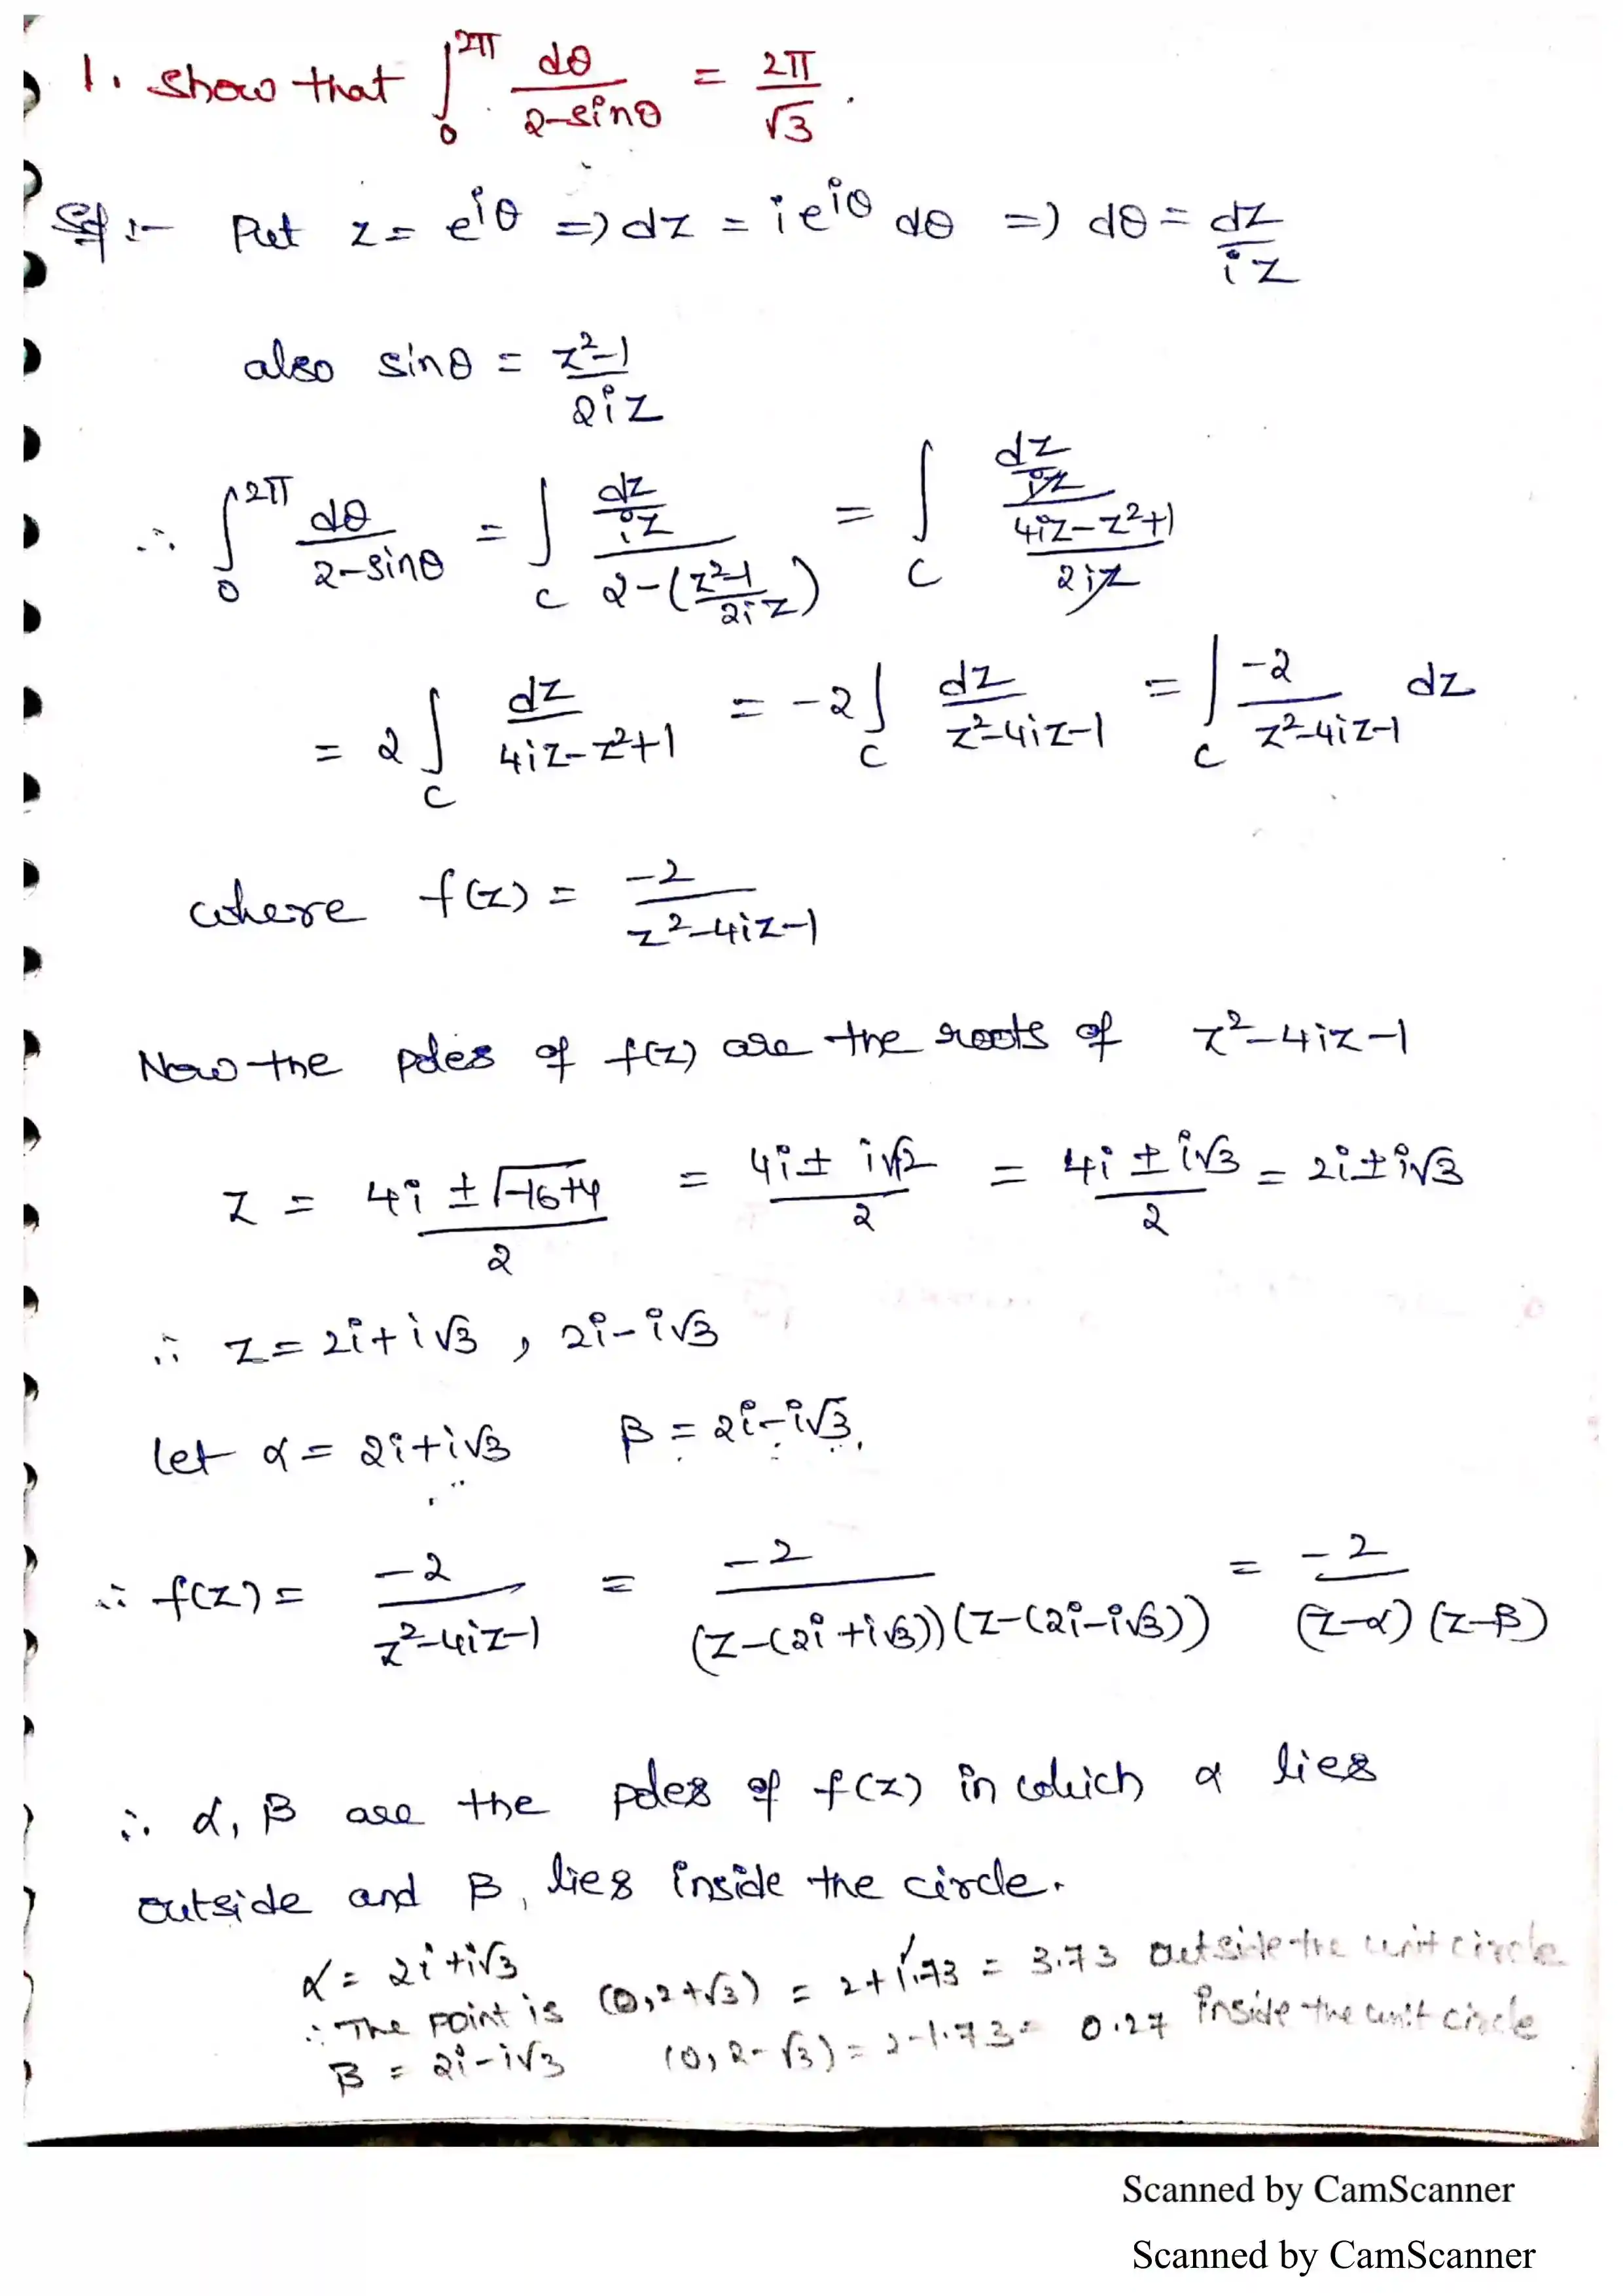 1. Show that ∫₀^{2π} dθ/(2-sinθ) = 2π/√3.
Sol :- Put z = e^{iθ} => dz = i e^{iθ} dθ => dθ = dz/(iz)
also sinθ = (z²-1)/(2iz)
∴ ∫₀^{2π} dθ/(2-sinθ) = ∫_C (dz/(iz))/(2-((z²-1)/(2iz))) = ∫_C (dz/(iz))/((4iz-z²+1)/(2iz))
= 2∫_C dz/(4iz-z²+1) = -2∫_C dz/(z²-4iz-1) = ∫_C -2/(z²-4iz-1) dz
where f(z) = -2/(z²-4iz-1)
Now the poles of f(z) are the roots of z²-4iz-1
z = (4i ±√(-16+4))/2 = (4i ± i√12)/2 = (4i ± i√3)/2 = 2i±i√3
∴ z = 2i+i√3 , 2i-i√3
let α = 2i+i√3 β = 2i-i√3.
∴ f(z) = -2/(z²-4iz-1) = -2/((z-(2i+i√3))(z-(2i-i√3))) = -2/((z-α)(z-β))
∴ α, β are the poles of f(z) in which α lies
outside and β, lies inside the circle.
α = 2i+i√3
∴ The point is (0,2+√3) = 2+1.73 = 3.73 outside the unit circle
β = 2i-i√3 (0,2-√3) = 2-1.73 = 0.27 inside the unit circle
Scanned by CamScanner
Scanned by CamScanner